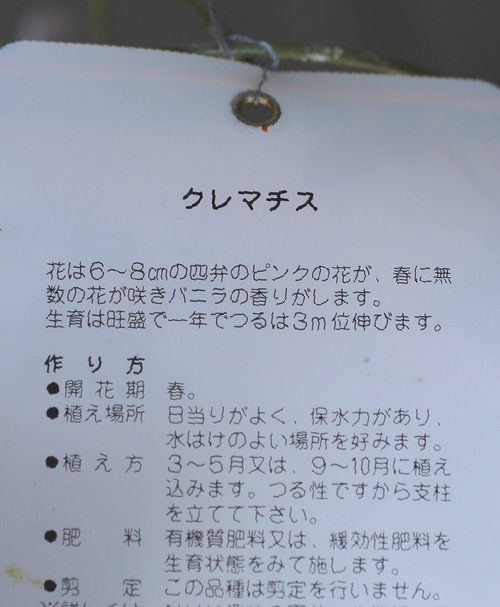 クレマチス
花は6〜8㎝の四弁のピンクの花が、春に無
数の花が咲きバニラの香りがします。
生育は旺盛で一年でつるは3m位伸びます。
作り方
●開花期 春。
●植え場所 日当りがよく、保水力があり、
水はけのよい場所を好みます。
●植え方 3〜5月又は、9〜10月に植え
込みます。つる性ですから支柱
を立てて下さい。
●肥料 有機質肥料又は、緩効性肥料を
生育状態をみて施します。
●剪定 この品種は剪定を行いません。